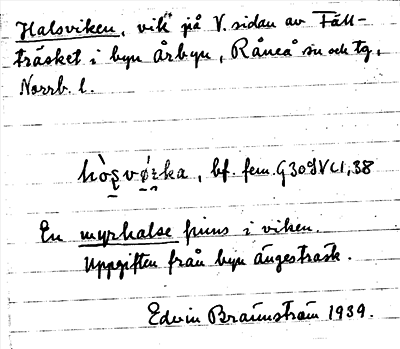 Halsviken, vik på V. sidan av Fäll-
träsket i byn Årbyn, Råneå sn och tg,
Norrb. l.
bf. fem.
En myrhalse finns i viken.
Uppgiften från byn Ängesträsk.
Edvin Brännström 1939.